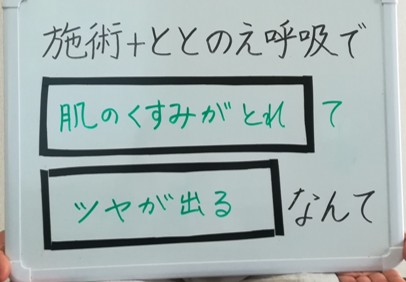 施術+ととのえ呼吸で
肌のくすみがとれて
ツヤが出るなんて